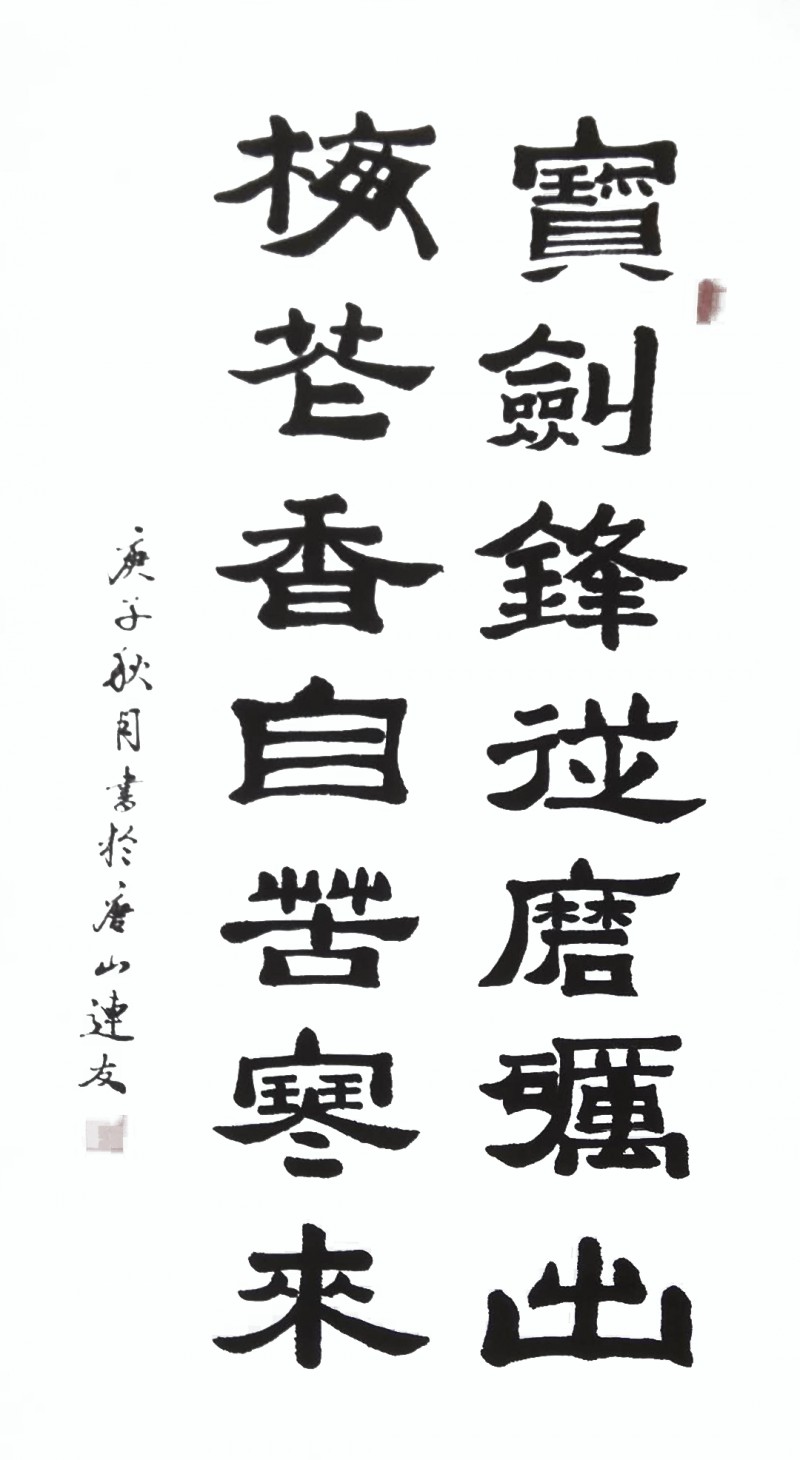 寶劍鋒從磨礪出
梅花香自苦寒來
庚子秋月書於唐山連友